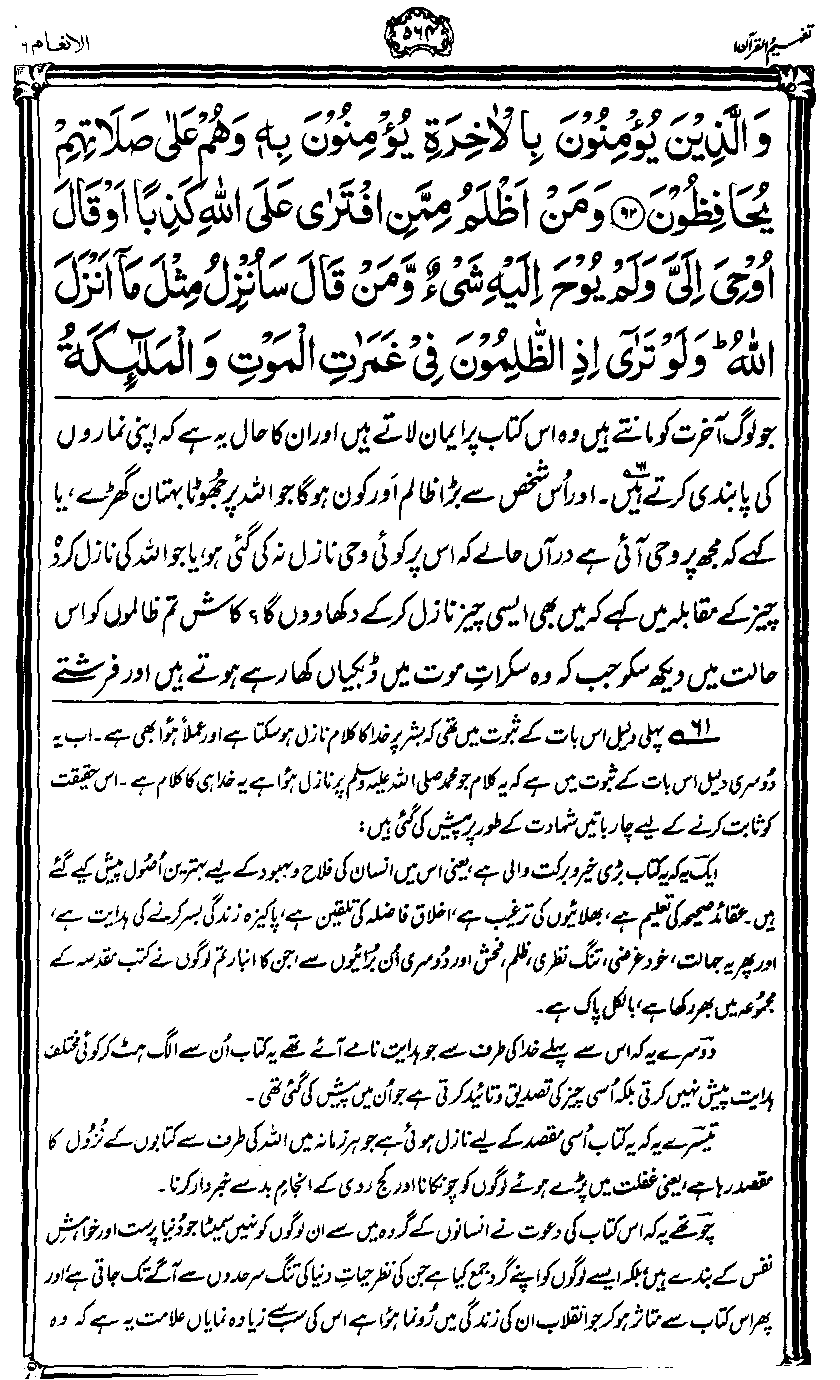 تفہیم القرآن۱
۵۶۴
الانعام ۶
وَالَّذِيْنَ يُؤْمِنُوْنَ بِالْاٰخِرَةِ يُؤْمِنُوْنَ بِهٖ وَهُمْ عَلٰى صَلَاتِهِمْ
يُحَافِظُوْنَ ﴿۹۲﴾ وَمَنْ اَظْلَمُ مِمَّنِ افْتَرٰى عَلَى اللّٰهِ كَذِبًا اَوْ قَالَ
اُوْحِيَ اِلَيَّ وَلَمْ يُوْحَ اِلَيْهِ شَيْءٌ وَّمَنْ قَالَ سَاُنْزِلُ مِثْلَ مَآ اَنْزَلَ
اللّٰهُ ؕ وَلَوْ تَرٰٓى اِذِ الظّٰلِمُوْنَ فِيْ غَمَرٰتِ الْمَوْتِ وَالْمَلٰٓئِكَةُ
جو لوگ آخرت کو مانتے ہیں وہ اس کتاب پر ایمان لاتے ہیں اور ان کا حال یہ ہے کہ اپنی نمازوں
کی پابندی کرتے ہیں۶۱۔ اور اُس شخص سے بڑا ظالم اَور کون ہوگا جو اللہ پر جھُوٹا بہتان گھڑے، یا
کہے کہ مجھ پر وحی آئی ہے درآں حالے کہ اس پر کوئی وحی نازل نہ کی گئی ہو، یا جو اللہ کی نازل کردہ
چیز کے مقابلہ میں کہے کہ میں بھی ایسی چیز نازل کر کے دکھا دوں گا؟ کاش تم ظالموں کو اس
حالت میں دیکھ سکو جب کہ وہ سکراتِ موت میں ڈبکیاں کھا رہے ہوتے ہیں اور فرشتے
۶۱ پہلی دلیل اس بات کے ثبوت میں تھی کہ بشر پر خدا کا کلام نازل ہو سکتا ہے اور عملاً ہوٴا بھی ہے۔ اب یہ
دُوسری دلیل اس بات کے ثبوت میں ہے کہ یہ کلام جو محمد صلی اللہ علیہ وسلم پر نازل ہوٴا ہے یہ خدا ہی کا کلام ہے۔ اس حقیقت
کو ثابت کرنے کے لیے چار باتیں شہادت کے طور پر پیش کی گئی ہیں:
ایک یہ کہ یہ کتاب بڑی خیر و برکت والی ہے، یعنی اس میں انسان کی فلاح و بہبود کے لیے بہترین اُصُول پیش کیے گئے
ہیں۔ عقائدِ صحیحہ کی تعلیم ہے، بھلائیوں کی ترغیب ہے، اخلاقِ فاضلہ کی تلقین ہے، پاکیزہ زندگی بسر کرنے کی ہدایت ہے،
اور پھر یہ جہالت، خود غرضی، تنگ نظری، ظلم، فحش اور دُوسری اُن بُرائیوں سے، جن کا انبار تم لوگوں نے کتب مقدسہ کے
مجمُوعہ میں بھر رکھا ہے، بالکل پاک ہے۔
دوسرے یہ کہ اس سے پہلے خدا کی طرف سے جو ہدایت نامے آئے تھے یہ کتاب اُن سے الگ ہٹ کر کوئی مختلف
ہدایت پیش نہیں کرتی بلکہ اُسی چیز کی تصدیق و تائید کرتی ہے جو اُن میں پیش کی گئی تھی۔
تیسرے یہ کہ یہ کتاب اُسی مقصد کے لیے نازل ہوئی ہے جو ہر زمانہ میں اللہ کی طرف سے کتابوں کے نُزُول کا
مقصد رہا ہے، یعنی غفلت میں پڑے ہوئے لوگوں کو چونکانا اور کج روی کے انجامِ بد سے خبردار کرنا۔
چوتھے یہ کہ اس کتاب کی دعوت نے انسانوں کے گروہ میں سے ان لوگوں کو نہیں سمیٹا جو دُنیا پرست اور خواہشِ
نفس کے بندے ہیں، بلکہ ایسے لوگوں کو اپنے گرد جمع کیا ہے جن کی نظر حیاتِ دنیا کی تنگ سرحدوں سے آگے تک جاتی ہے، اور
پھر اس کتاب سے متاثر ہو کر جو انقلاب ان کی زندگی میں رُونما ہوٴا ہے اس کی سب سے زیادہ نمایاں علامت یہ ہے کہ وہ